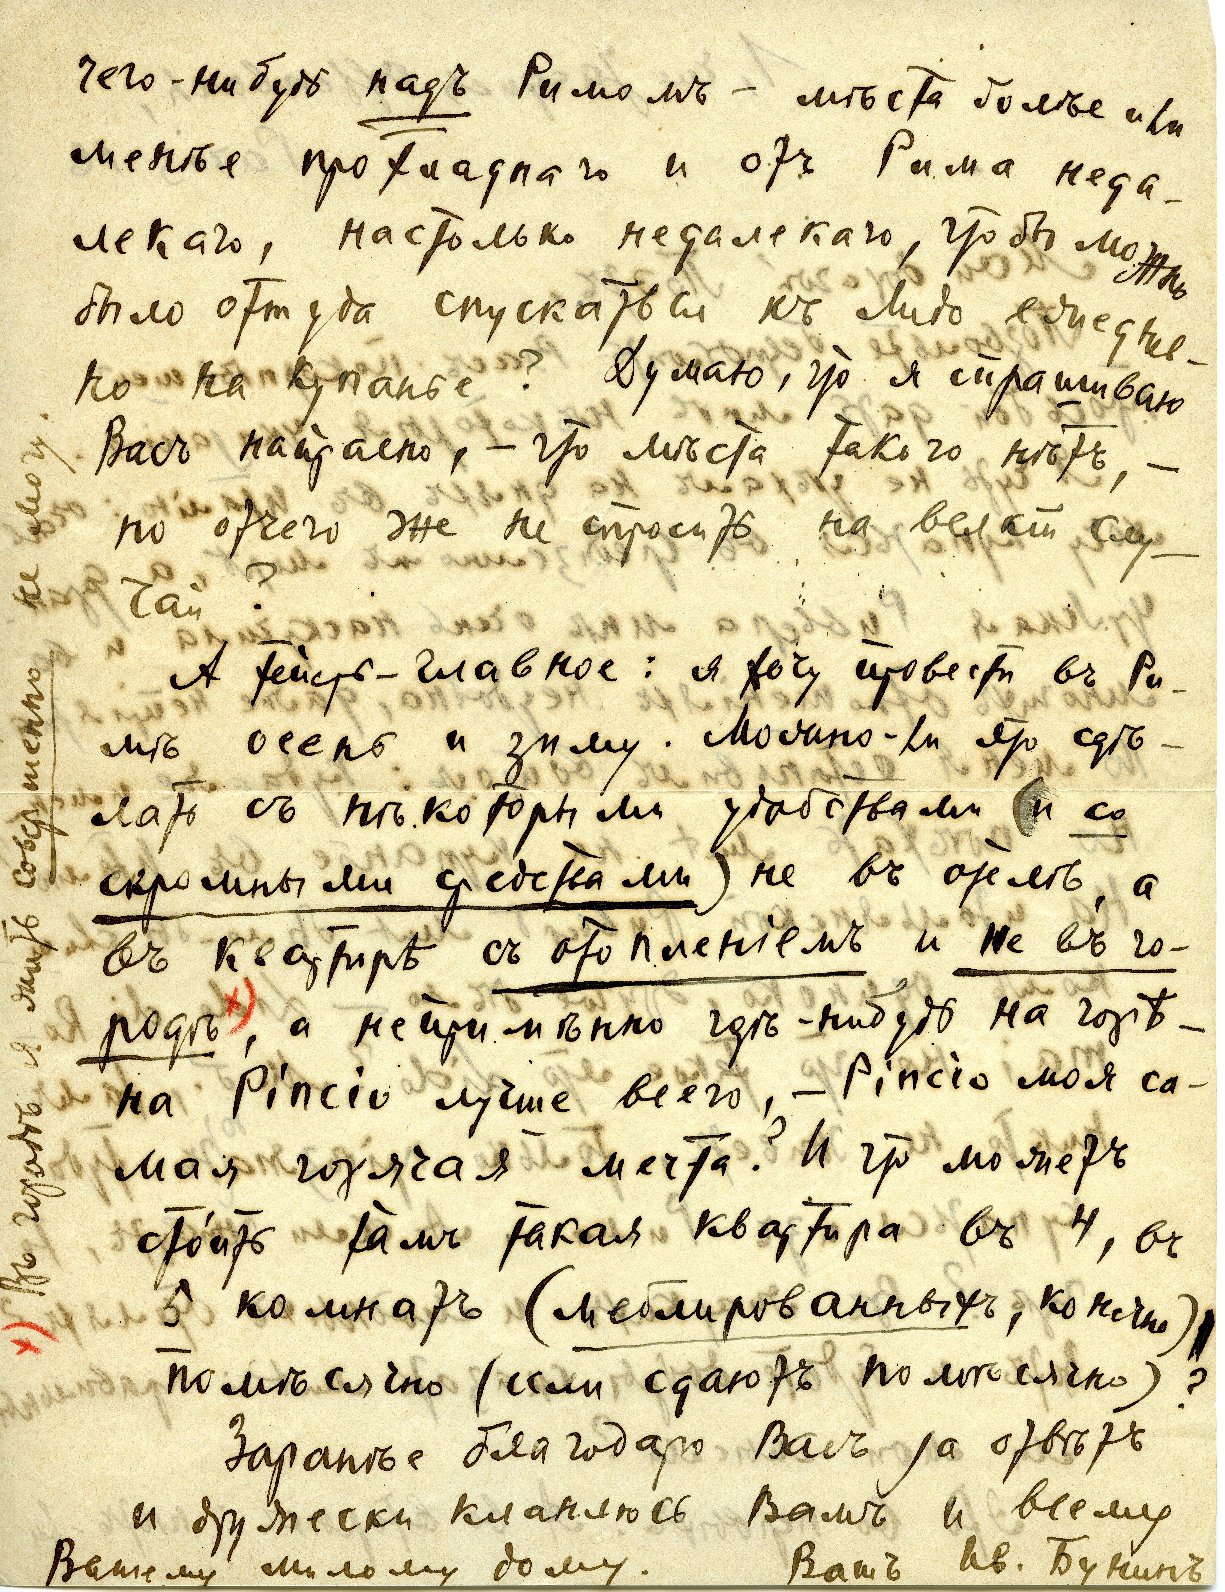 чего-нибудь надъ Римомъ – мѣста болѣе или
менѣе прохладнаго и отъ Рима неда-
лекаго, настолько недалекаго, чтобы можно
было оттуда спускаться къ Лидо ежеднев-
но на купанье? Думаю, что я спрашиваю
Васъ напрасно, – что мѣста такого нѣтъ, –
но отчего же не спросить на всякій слу-
чай?
А теперь – главное: я хочу провести въ Ри-
мѣ осень и зиму. Можно-ли это сдѣ-
лать съ нѣкоторыми удобствами (и со
скромными средствами) не въ отелѣ, а
въ квартирѣ съ отопленіемъ и не въ го-
родѣ х), а непримѣнно гдѣ-нибудь на горѣ –
на Pincio лучше всего, – Pincio моя са-
мая горячая мечта? И что можетъ
стóить тамъ такая квартира въ 4, въ
5 комнатъ (меблированныхъ, конечно),
помѣсячно (если сдаютъ помѣсячно)?
Заранѣе благодарю Васъ за отвѣтъ
и дружески кланяюсь Вамъ и всему
Вашему милому дому. Вашъ Ив. Бунинъ
х) Въ городѣ я жить совершенно не могу.